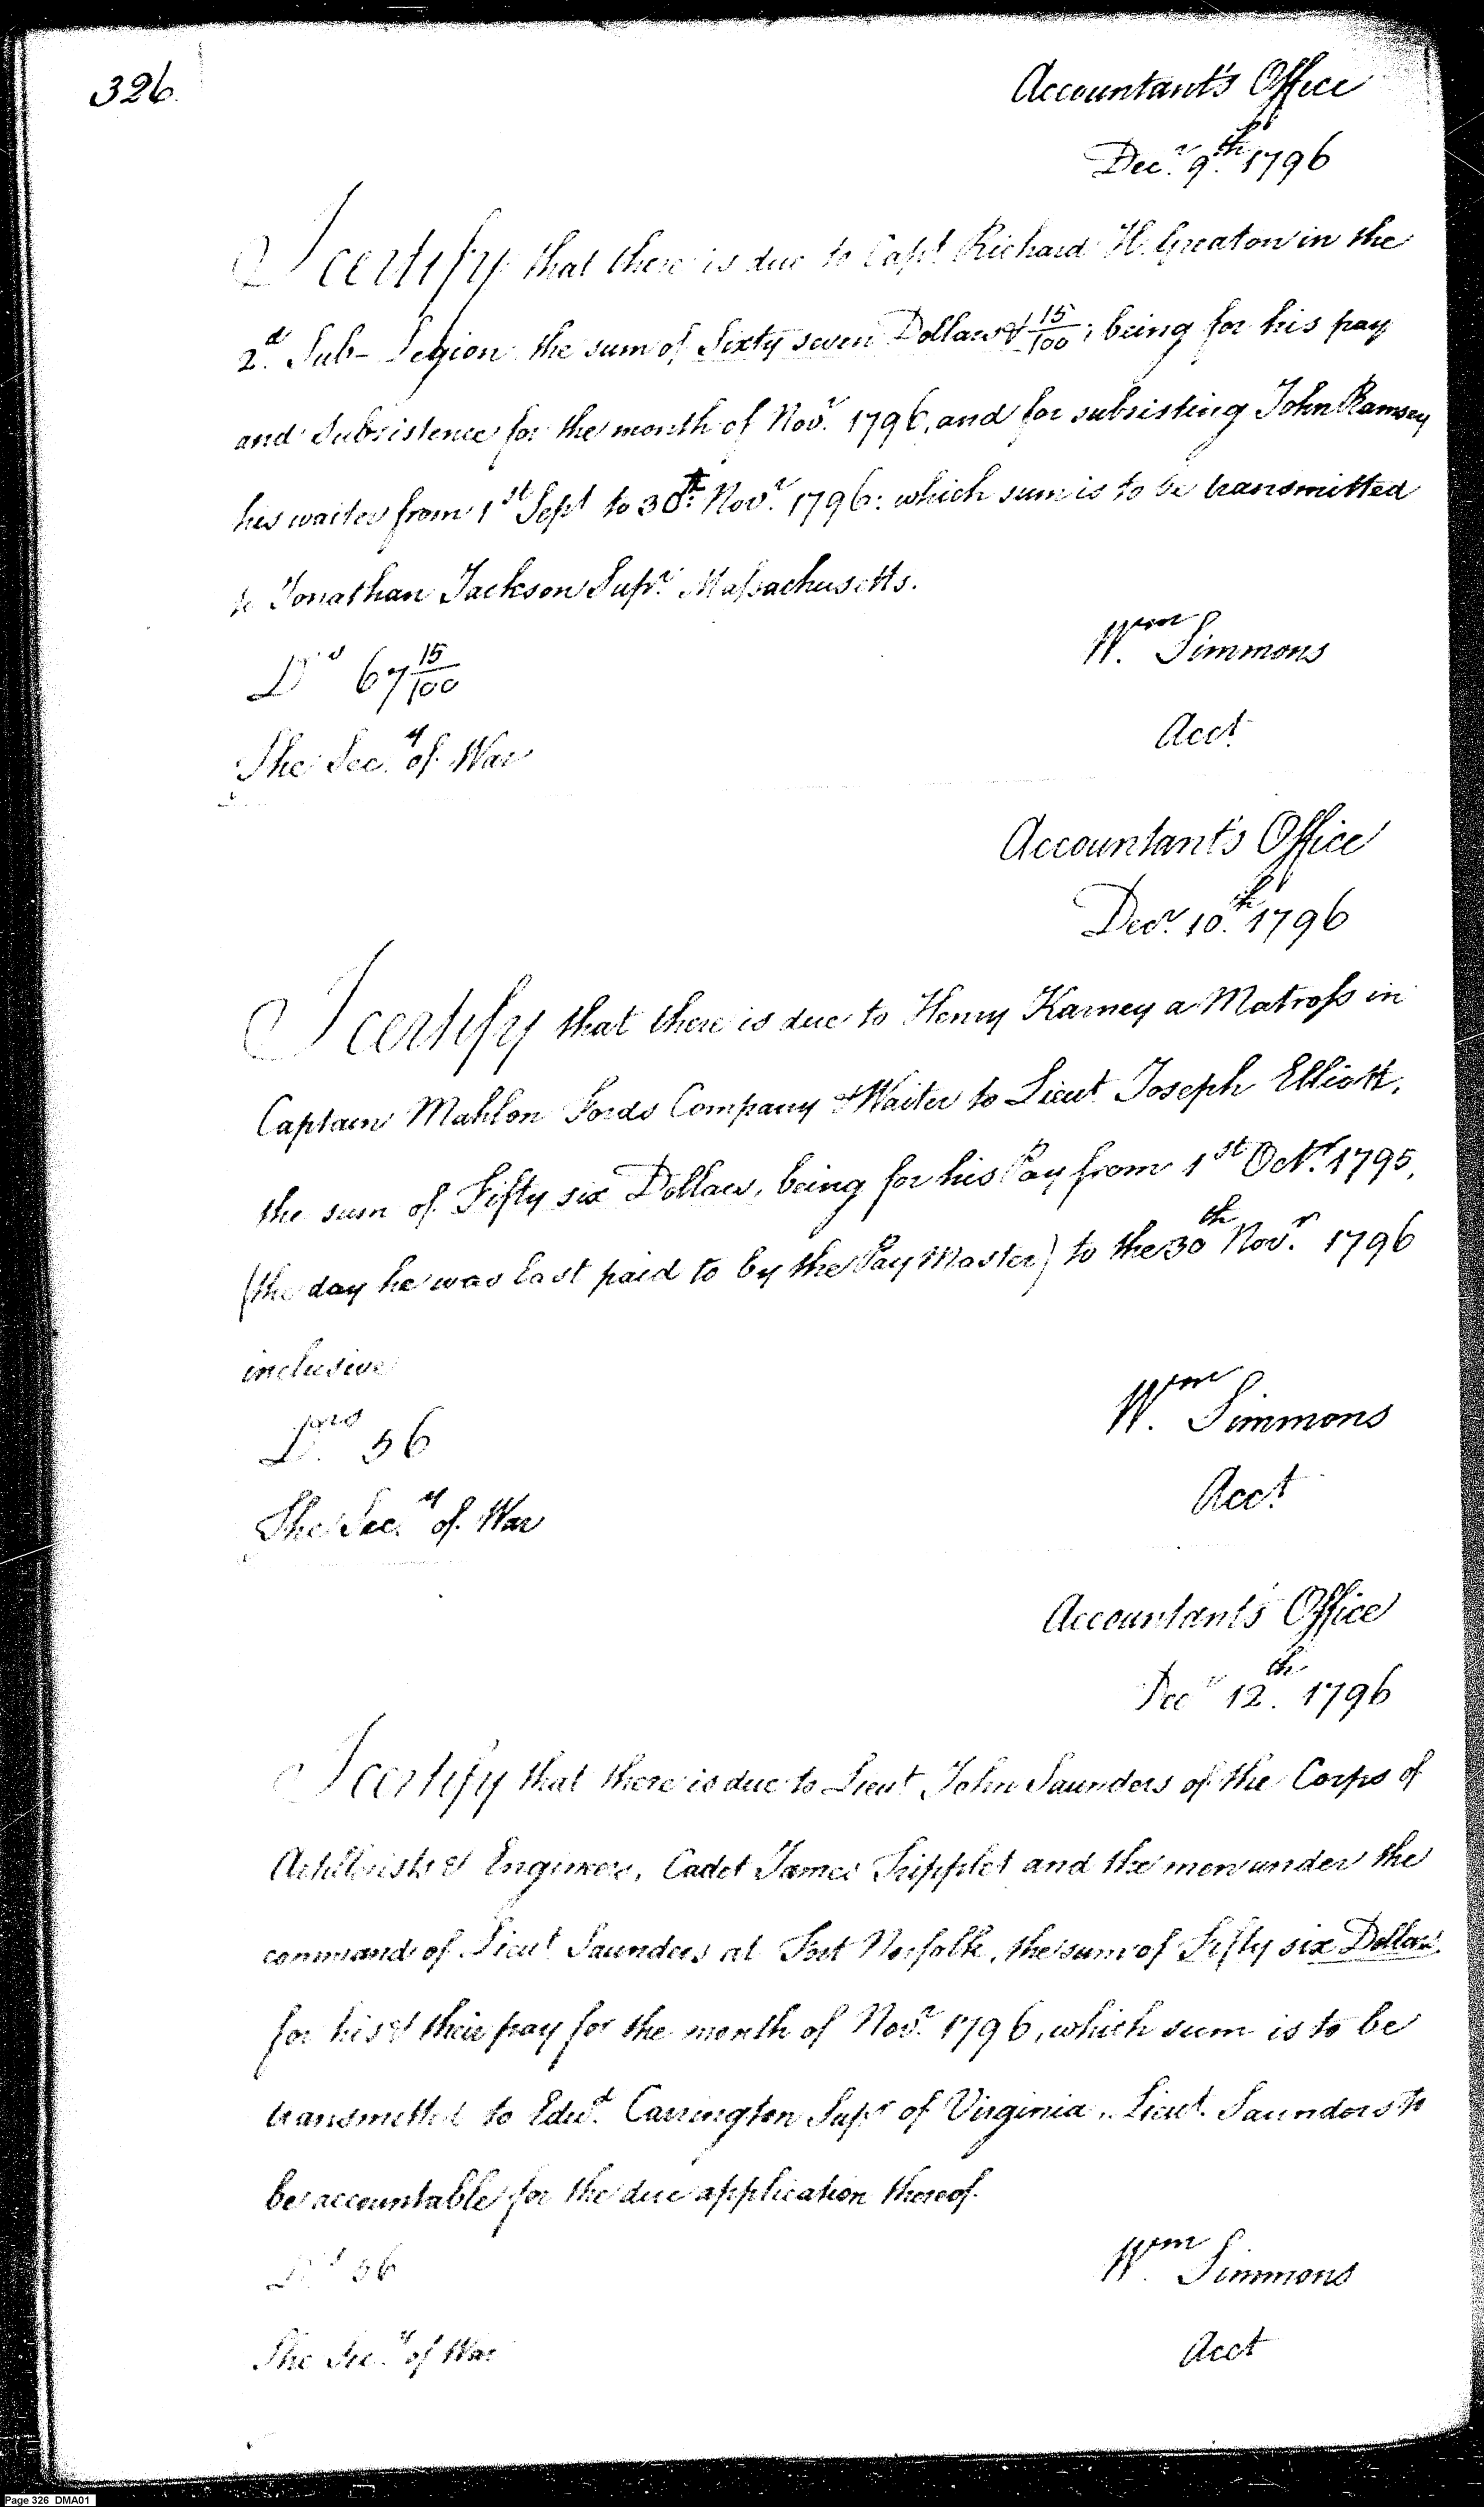 326.
Accountant's Office
Decr. 9th. 1796
I certify that there is due to Capt. Richard H. Greaton in the
2d. Sub-Legion the sum of Sixty seven Dollars & 15/100; being for his pay
and Subsistence for the month of Novr. 1796, and for subsisting John Ramsey
his waiter from 1st Sept to 30th. Novr. 1796: which sum is to be transmitted
to Jonathan Jackson Supr. Massachusetts.
Drs 67 15/100
Wm. Simmons
Acct.
The Secy. of War
Accountant's Office
Decr. 10th. 1796
I certify that there is due to Henry Karney a Matross in
Captain Mahlon Fords Company & Waiter to Lieut. Joseph Elliott,
the sum of Fifty six Dollars, being for his Pay from 1st Octr. 1795,
(the day he was last paid to by the Pay Master) to the 30th Novr. 1796
inclusive
Wm. Simmons
56
Acct.
The Secy. of War
Accountant's Office
Decr 12th. 1796
I certify that there is due to Lieut. John Saunders of the Corps of
Artillerists & Engineers, Cadet James Tripplet and the men under the
command of Lieut. Saunders at Fort Norfolk, the sum of Fifty six Dollars
for his & their pay for the month of Novr. 1796, which sum is to be
transmitted to Edwd. Carrington Supr of Virginia, Lieut. Saunders to
be accountable for the due application thereof.
Drs 56
Wm. Simmons
Acct
The Secy. of War
Page 326 DMA01